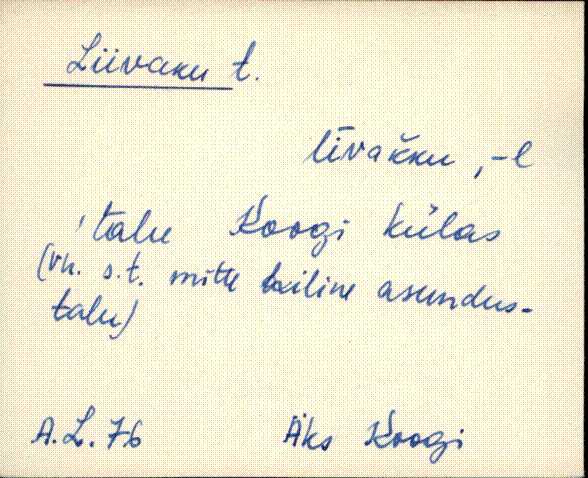 Liivaku t.
līvakku, -l
talu Koogi külas
(vn. s.t. mitte asundus-
talu)
A.L. 76 Äks Koogi